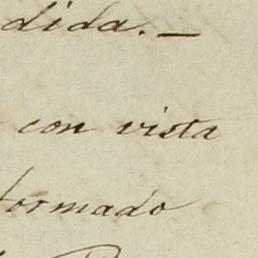 dida. —
con vista
formado